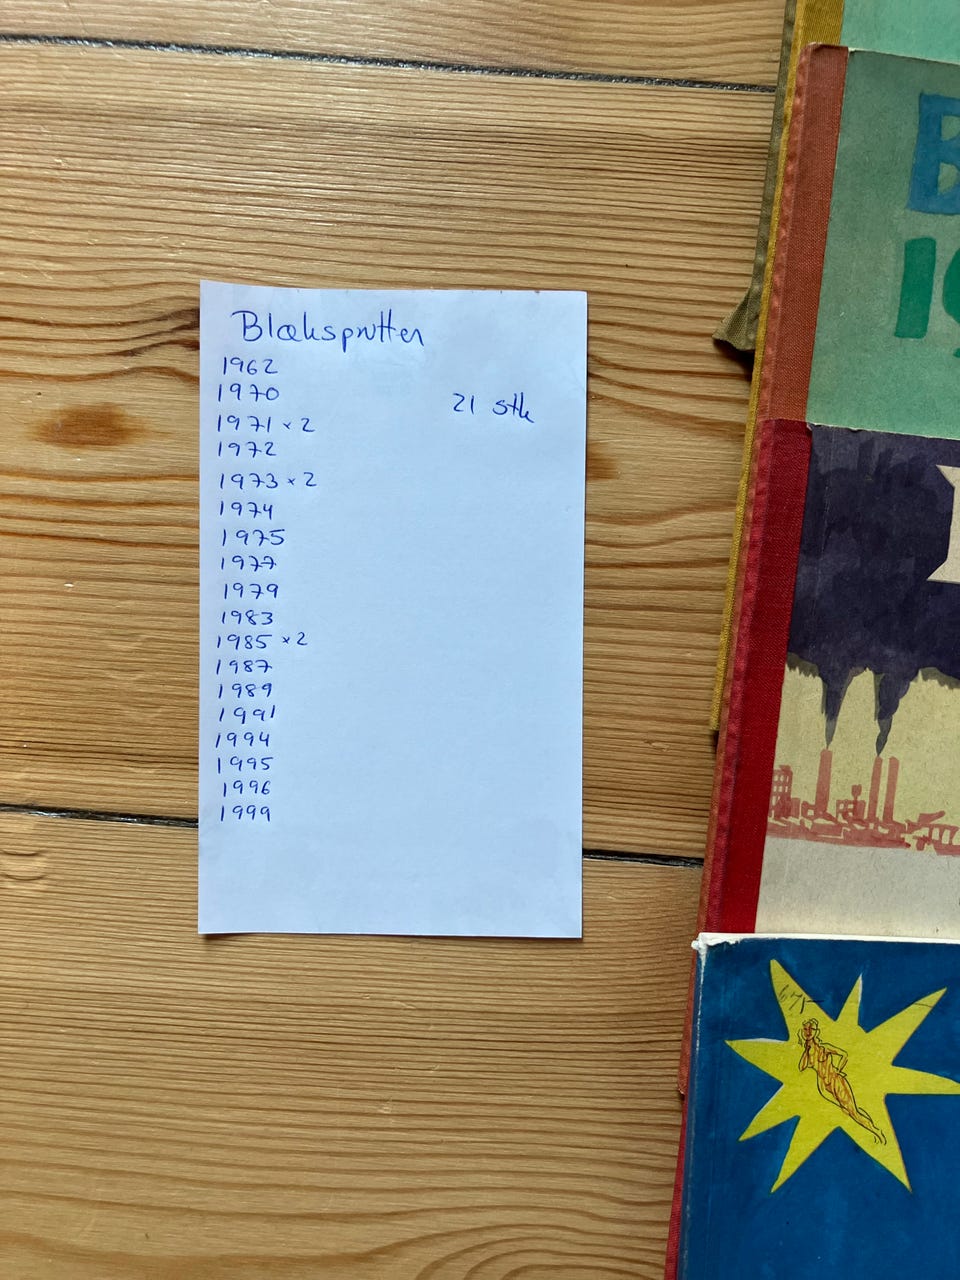 Blæksprutten
1962
1970
21 stk
1971 × 2
1972
1973 × 2
1974
1975
1977
1979
1983
1985 × 2
1987
1989
1991
1994
1995
1996
1999
B
19